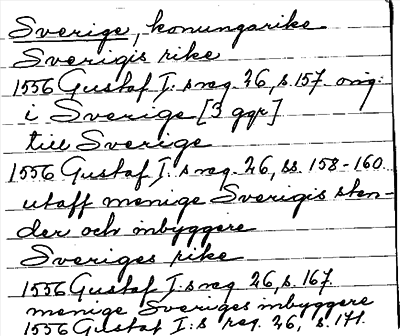 Sverige, konungarike
Sverigis rike
1556 Gustaf I:s reg. 26, s. 157. orig:
i Sverige [3 ggr]
till Sverige
1556 Gustaf I:s reg. 26, ss. 158-160.
utaff menige Sverigis sten-
der och inbyggere
Sveriges rike
1556 Gustaf I:s reg. 26, s. 167.
menige Sveriges inbyggere
1556 Gustaf I:s reg. 26, s. 171.